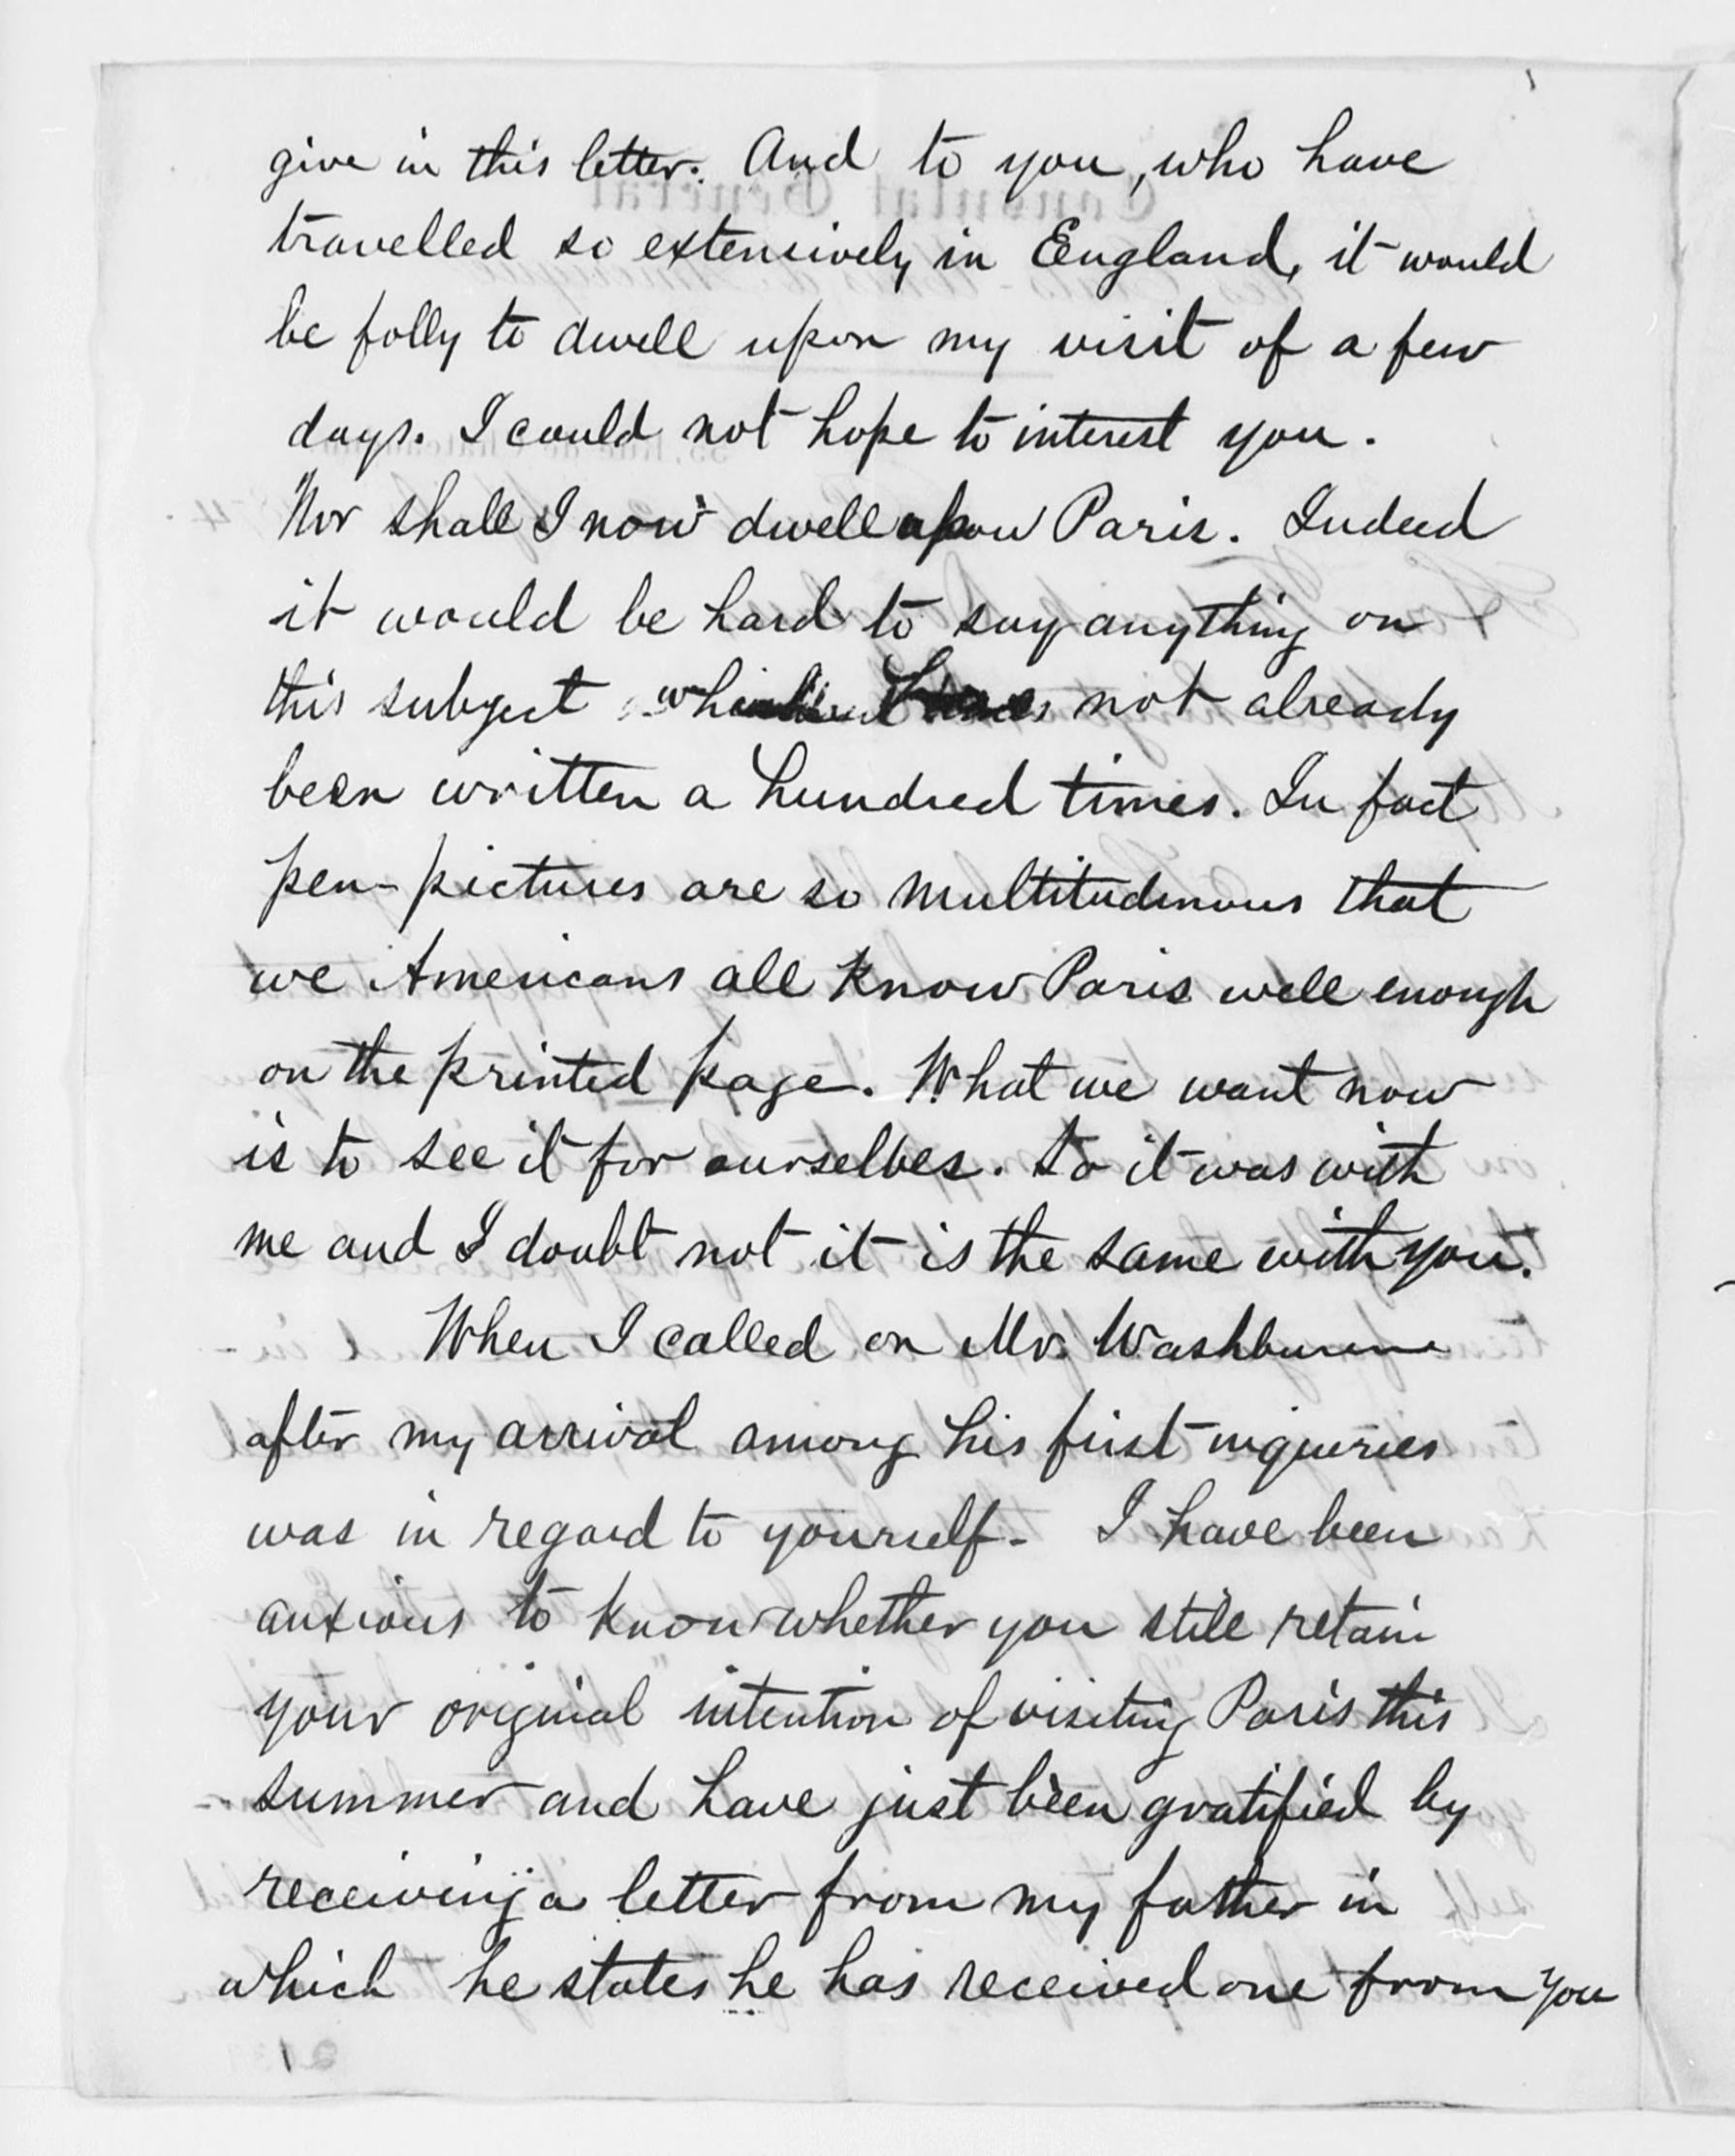 give in this letter. And to you, who have
travelled so extensively in England, it would
be folly to dwell upon my visit of a few
days. I could not hope to interest you.
Nor shall I now dwell upon Paris. Indeed
it would be hard to say anything on
this subject which has not already
been written a hundred times. In fact
pen-pictures are so multitudinous that
we Americans all know Paris well enough
on the printed page. What we want now
is to see it for ourselves. So it was with
me and I doubt not it is the same with you.
When I called on Mr. Washburne
after my arrival among his first inquiries
was in regard to yourself - I have been
anxious to know whether you still retain
your original intention of visiting Paris this
summer and have just been gratified by
receiving a letter from my father in
which he states he has received one from you